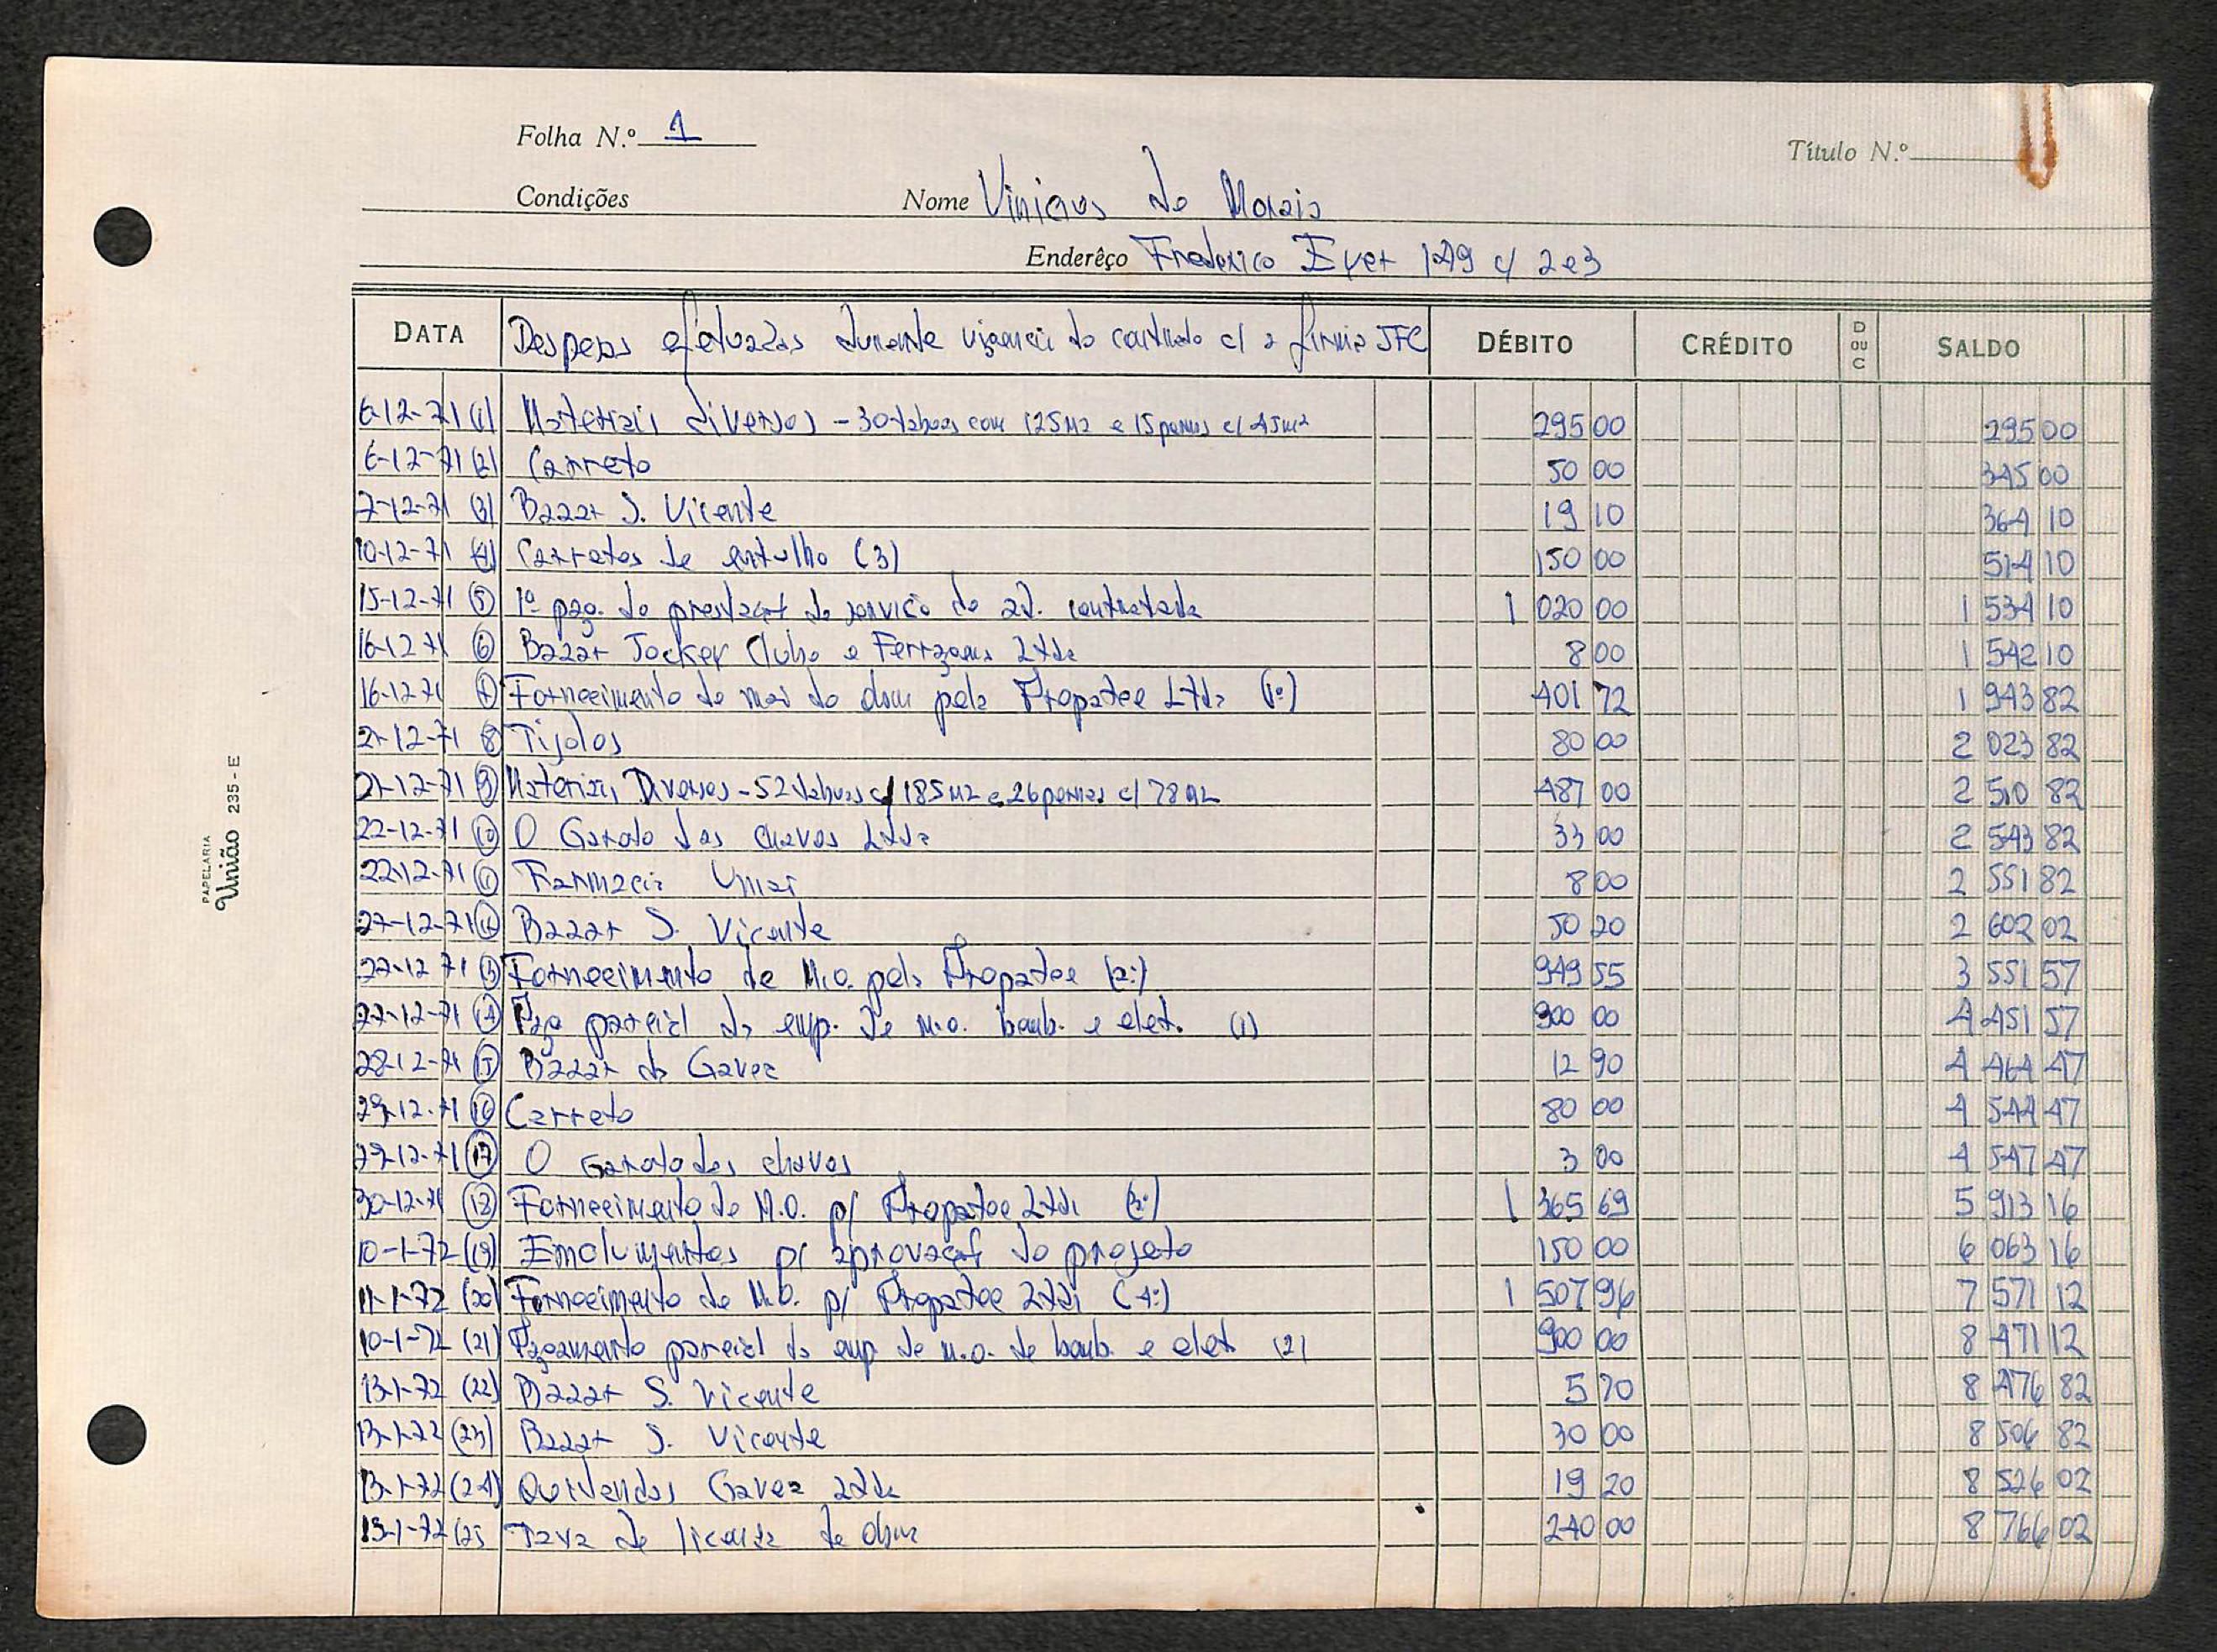 Folha N.º 1
Título N.º
Condições Nome Vinicius de Morais
Enderêço Frederico Eyer 149 c/ 2 e 3
DATA Despesas efetuadas durante vigencia do contrato c/ a firma JFC DÉBITO CRÉDITO D OU C SALDO
6-12-71 (1) Materiais diversos - 30 tabuas com 125 M2 e 15 pernas c/ 45 m2 295 00 295 00
6-12-71 (2) Carreto 50 00 345 00
7-12-71 (3) Bazar S. Vicente 19 10 364 10
10-12-71 (4) Carretos de entulho (3) 150 00 514 10
15-12-71 (5) 1º pag. da prestaçaõ de serviço de ad. contratada 1 020 00 1 534 10
16-12 71 (6) Bazar Jockey Clube e Ferragens Ltda 8 00 1 542 10
16-12-71 (7) Fornecimento de maõ de obra pela Propatec Ltda (1º) 401 72 1 943 82
21-12-71 (8) Tijolos 80 00 2 023 82
21-12-71 (9) Materiais Diversos - 52 tabuas c/ 185 M2 e 26 pernas c/ 78 487 00 2 510 82
22-12-71 (10) O Garoto das chaves Ltda 33 00 2 543 82
22-12-71 (11) Farmacia 8 00 2 551 82
27-12-71 (12) Bazar S. Vicente 50 20 2 602 02
27-12 71 (13) Fornecimento de M.O. pela Propatec (2º) 949 55 3 551 57
27-12-71 (14) Pag parcial da emp. de m.o. bomb. e elet. (1) 900 00 4 451 57
28-12-71 (15) Bazar da Gavea 12 90 4 464 47
29-12-71 (16) Carreto 80 00 4 544 47
29-12-71 (17) O Garoto das chaves 3 00 4 547 47
30-12-71 (18) Fornecimento de M.O. p/ Propatec Ltda (3º) 1 365 69 5 913 16
10-1-72 (19) Emolumentos p/ aprovaçaõ do projeto 150 00 6 063 16
11-1-72 (20) Fornecimento de M.O. p/ Propatec Ltda (4º) 1 507 96 7 571 12
10-1-72 (21) Pagamento parcial da emp de m.o. de bomb. e elet (2) 900 00 8 471 12
13-1-72 (22) Bazar S. Vicente 5 70 8 476 82
13-1-72 (23) Bazar S. Vicente 30 00 8 506 82
13-1-72 (24) Quitandas Gavea Ltda 19 20 8 526 02
13-1-72 (25 Taxa de licença de obra 240 00 8 766 02
PAPELARIA
União 235-E